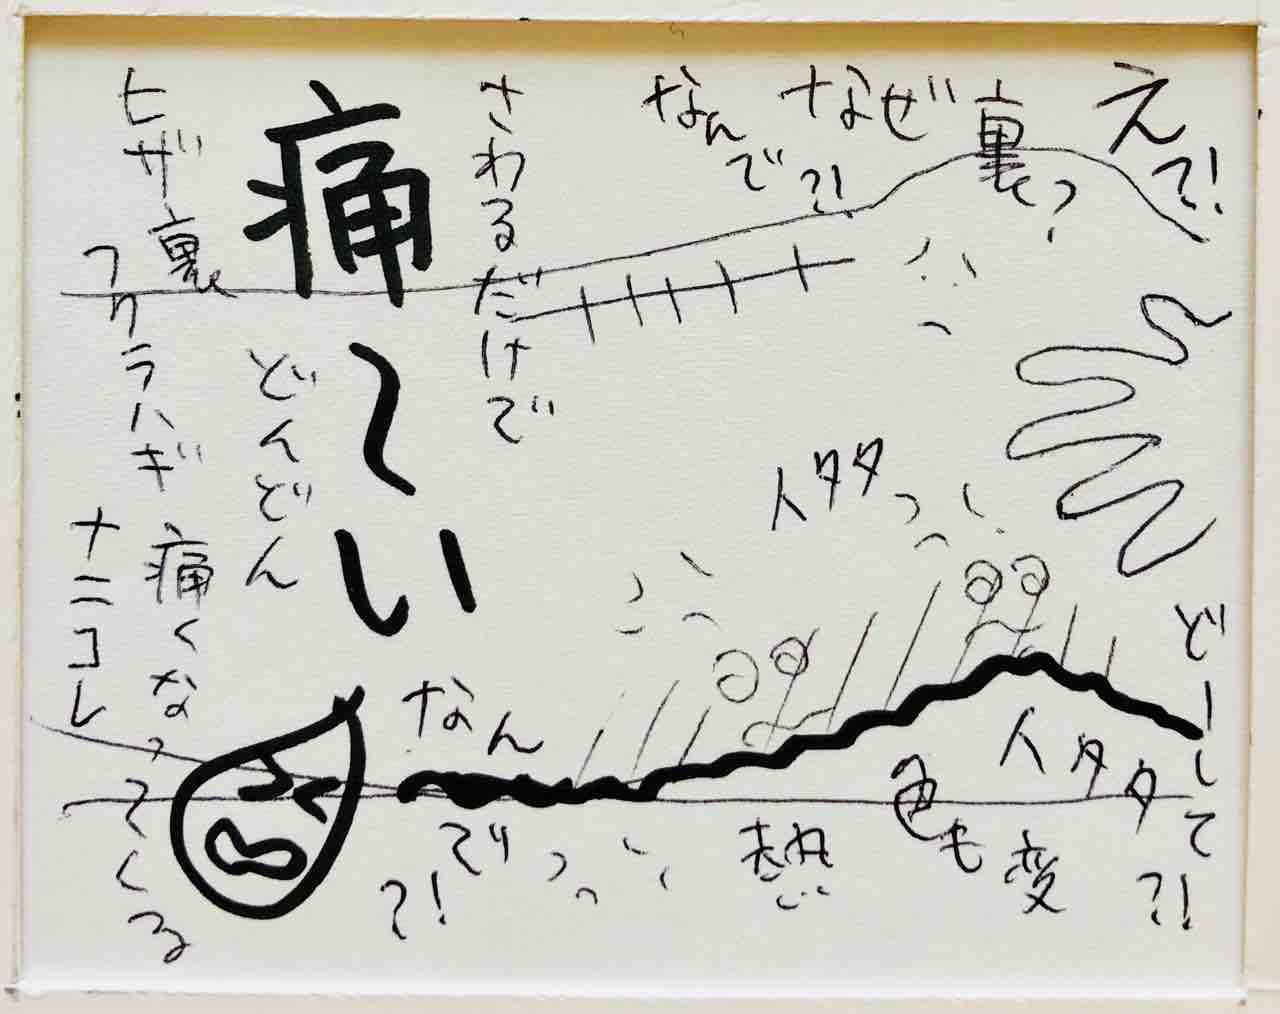 えっ?!
なぜ裏?
なんで?!
さわるだけで
痛〜い
どんどん
ヒザ裏
フクラハギ
痛くなってくる
ナニコレ
イタタ
どーして?!
イタタ
色も変
熱
なんで?!